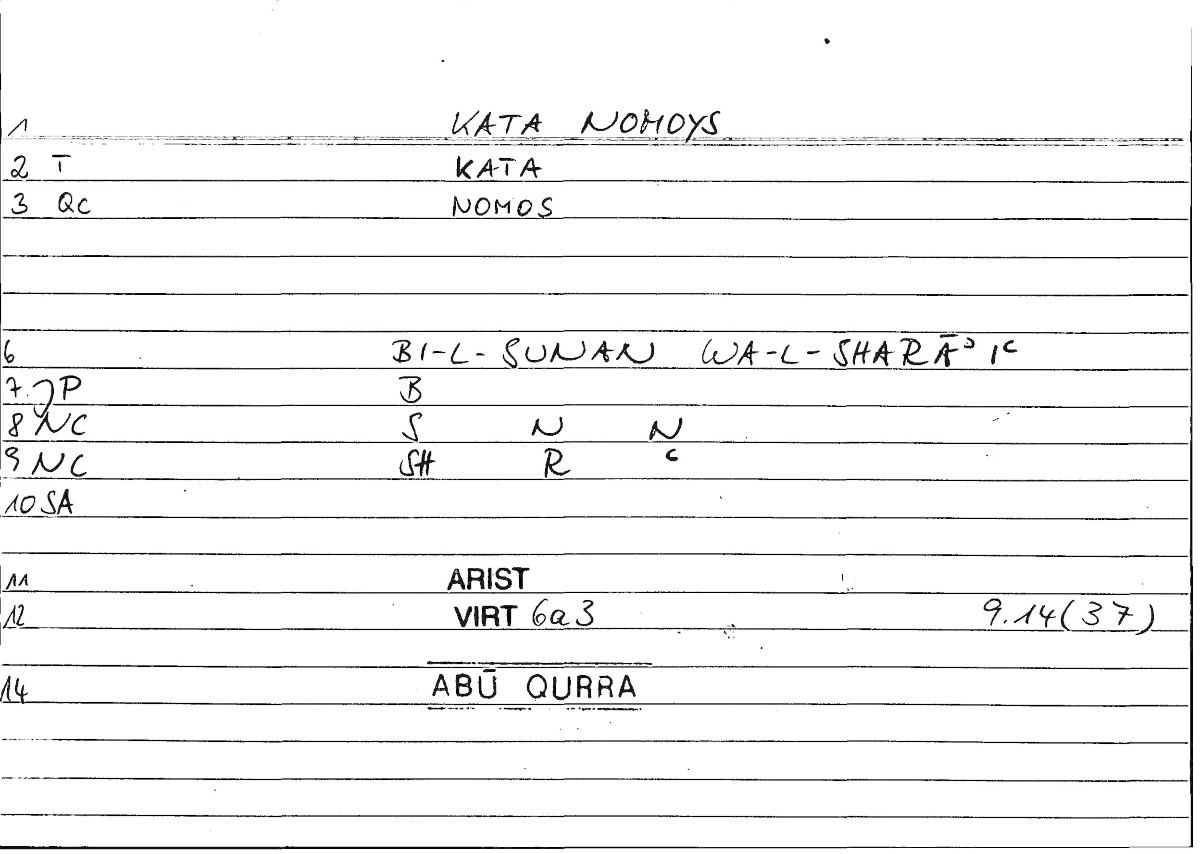 1 KATA NOMOYS
2 T KATA
3 QC NOMOS
6 BI-L-SUNAN WA-L-SHARĀʾIʿ
7 JP B
8 NC S N N
9 NC SH R ʿ
10 SA
11 ARIST
12 VIRT 6a3 9.14(37)
14 ABŪ QURRA